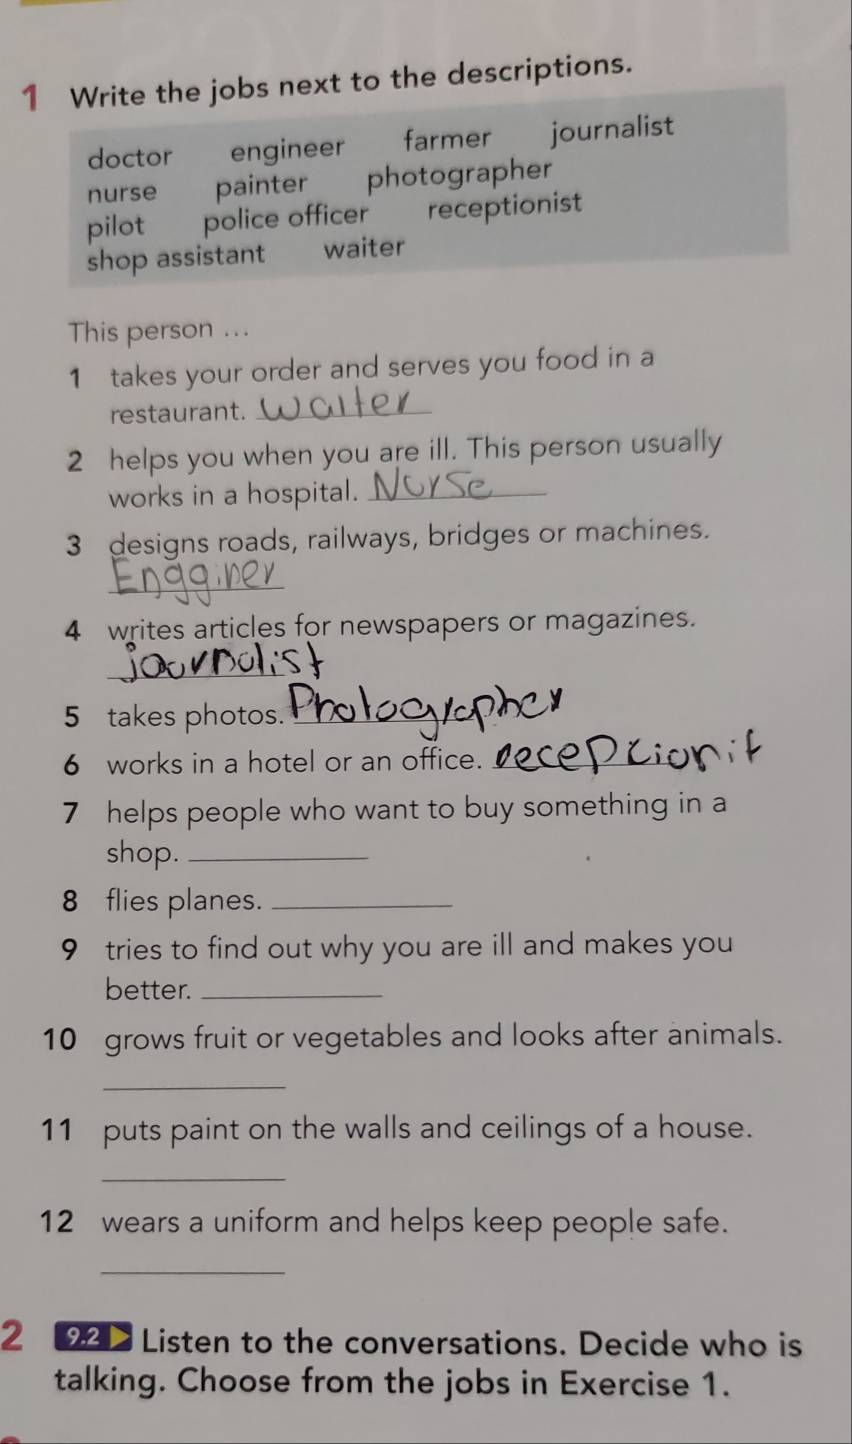 1 Write the jobs next to the descriptions.
doctor engineer farmer journalist
nurse painter photographer
pilot police officer receptionist
shop assistant waiter
This person ...
1 takes your order and serves you food in a
restaurant. Waiter
2 helps you when you are ill. This person usually
works in a hospital. Nurse
3 designs roads, railways, bridges or machines.
Engginer
4 writes articles for newspapers or magazines.
journalist
5 takes photos. Photographer
6 works in a hotel or an office. recepcionit
7 helps people who want to buy something in a
shop.
8 flies planes.
9 tries to find out why you are ill and makes you
better.
10 grows fruit or vegetables and looks after animals.
11 puts paint on the walls and ceilings of a house.
12 wears a uniform and helps keep people safe.
2 9.2 Listen to the conversations. Decide who is
talking. Choose from the jobs in Exercise 1.